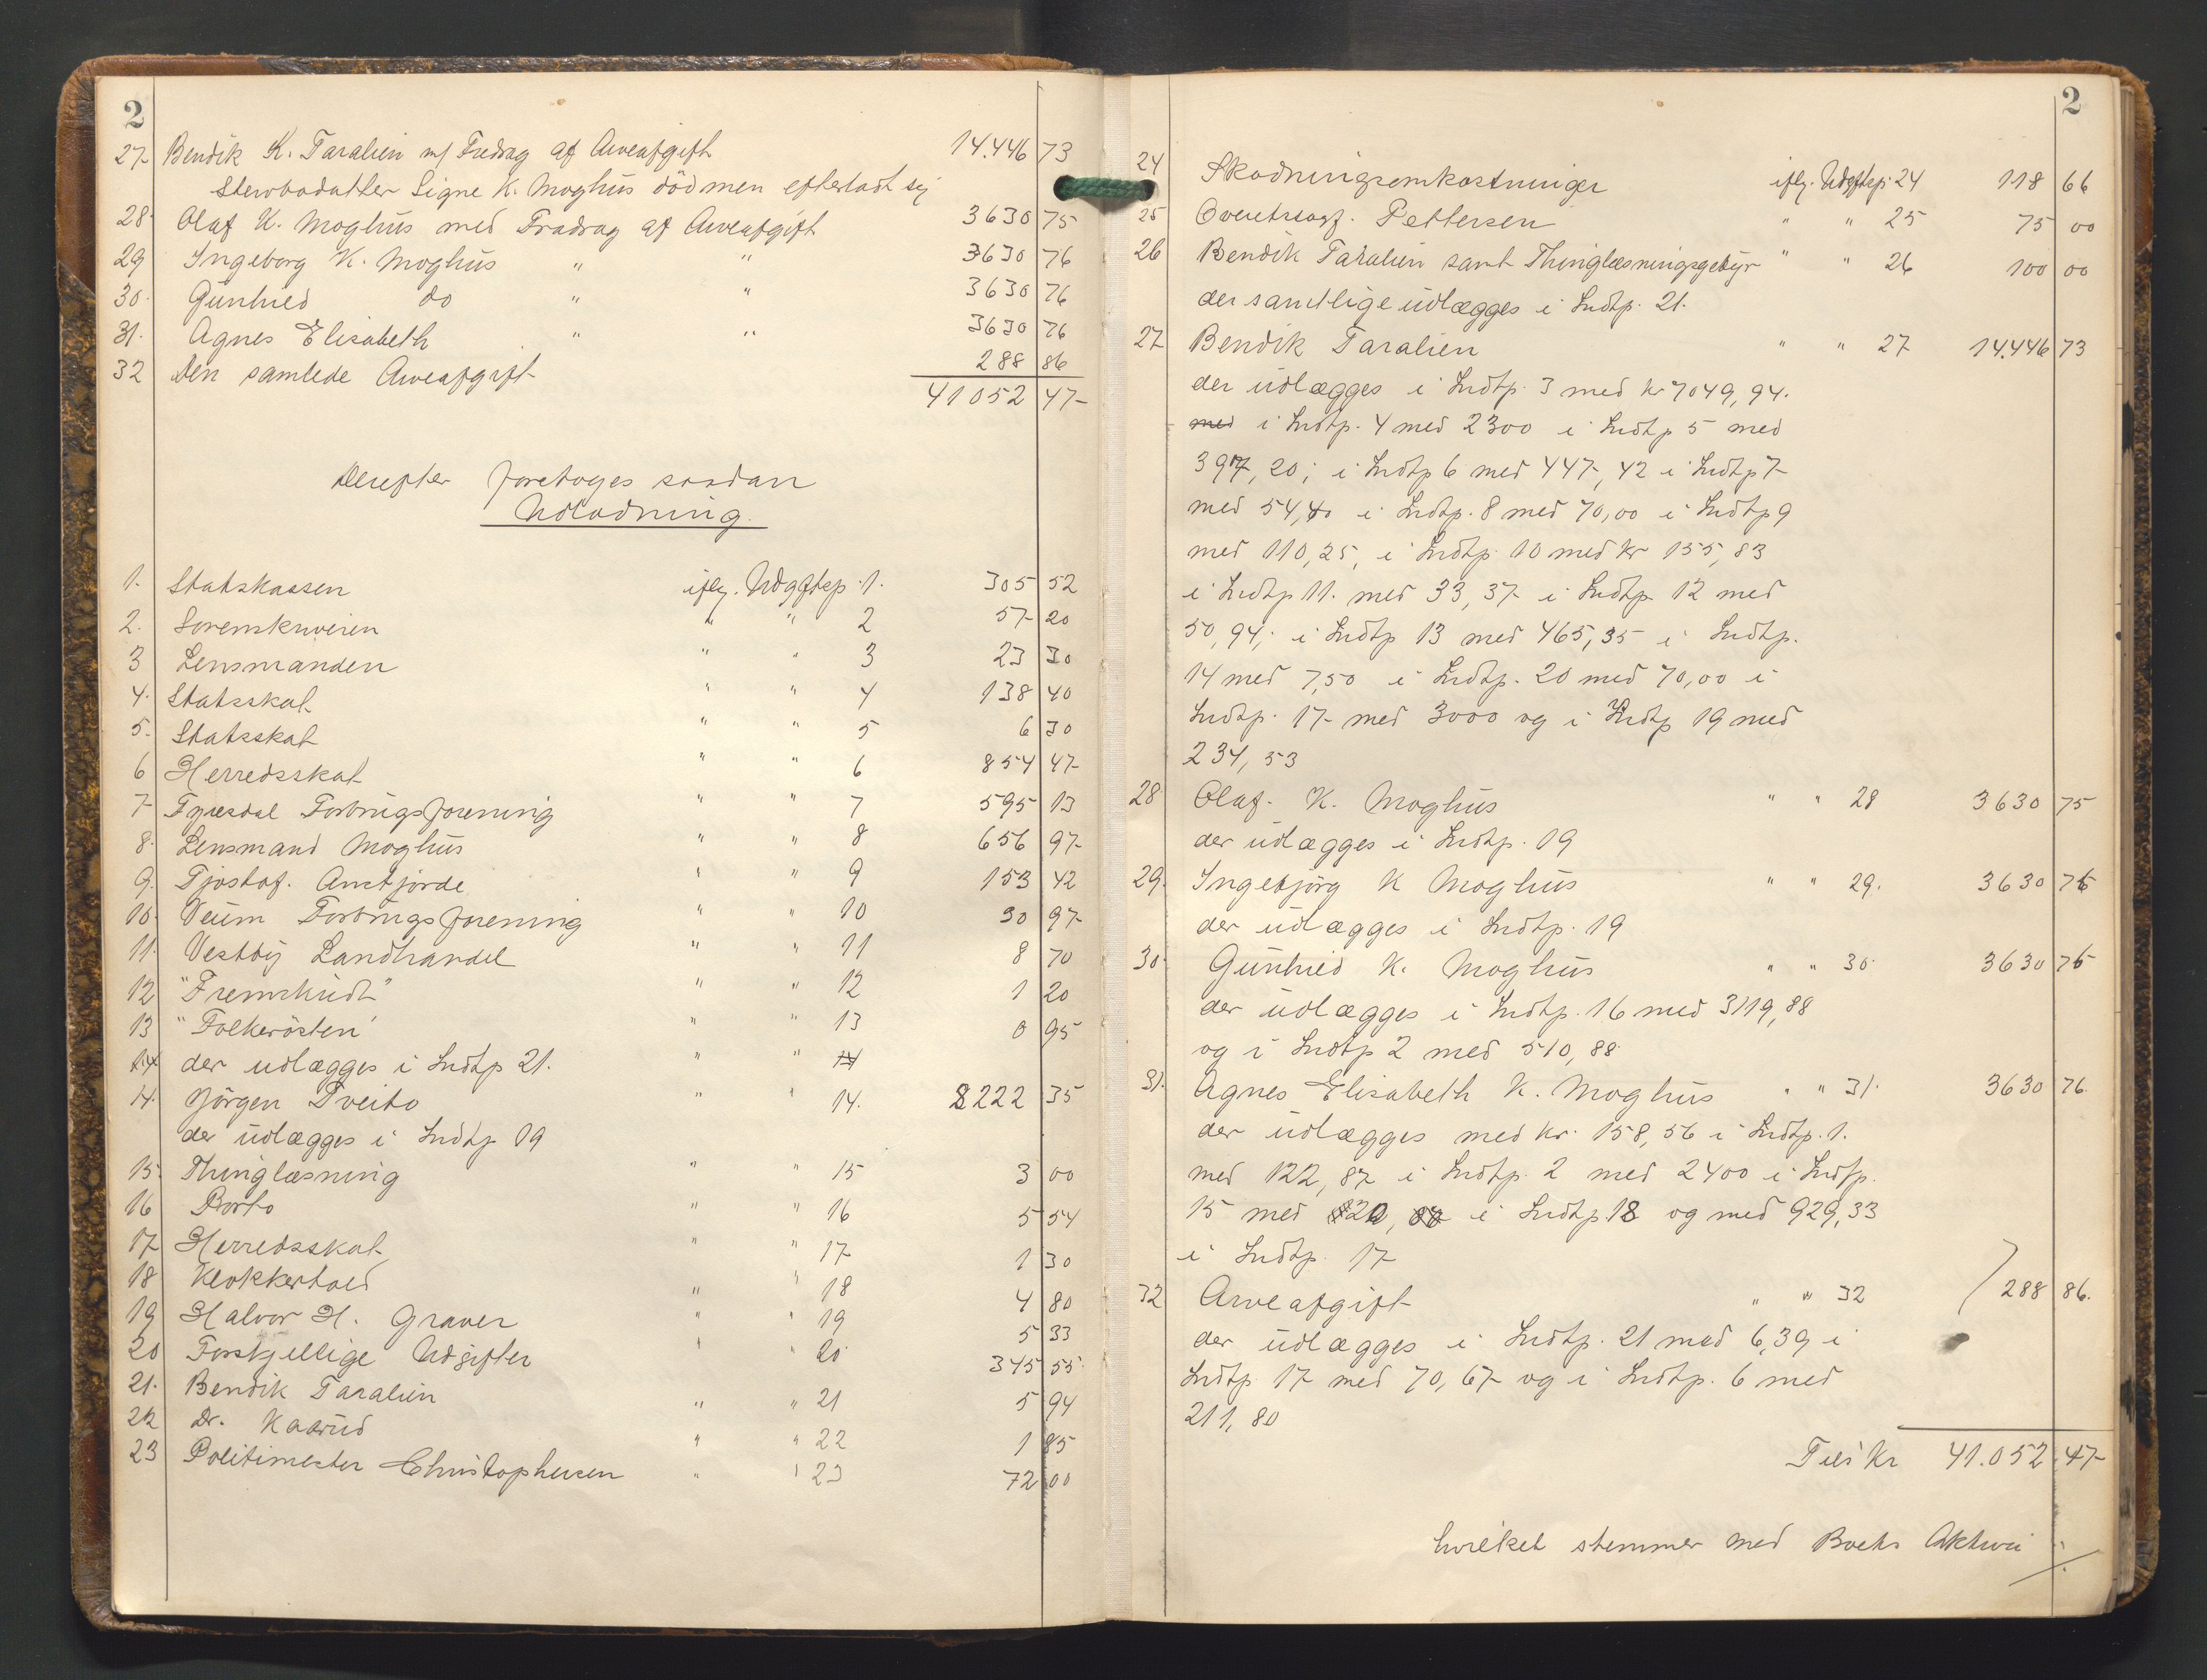 2
27 Bendik K. Taralien m/ Fradrag af Arveafgift 14.446 73
Stervbodatter Signe K. Moghus död men efterladt sig
28 Olaf K. Moghus med Fradrag af Arveafgift 3630 75
29 Ingeborg K. Moghus " " 3630 76
30. Gunhild do " " 3630 76
31. Agnes Elisabeth " " 3630 76
32 Den samlede Arveafgift 288 86
41052 47
Derefter foretoges saadan
Udlodning.
1. Statskassen iflg. Udgiftsp. 1. 305 52
2. Sorenskriveren " " 2 57 20
3 Lensmanden " " 3 23 30
4. Statsskat " " 4 138 40
5. Statsskat " " 5 6 30
6 Herredsskat " " 6 854 47
7 Fyresdal Forbrugsforening " " 7 595 13
8. Lensmand Moghus " " 8 656 97
9. Tjostaf. " " 9 153 42
10. Veum Forbrugsforening " " 10 30 97
11. Vestby Landhandel " " 11 8 70
12 "Fremskridt" " " 12 1 20
13 "Folkerösten" " " 13 0 95
14 der udlægges i Indtp 21. " " 14
14. Jörgen Tveito " " 14. 8222 35
der udlægges i Indtp 19
15. Thinglæsning " " 15 3 00
16 Porto " " 16 5 54
17 Herredsskat " " 17 1 30
18 Klokkertold " 18 4 80
19 Halvor H. Graver " " 19 5 33
20 Forskjellige Udgifter " " 20 345 55
21. Bendik Taralien " " 21 5 94
22 Dr. Kabrud " " 22 1 85
23 Politimester Christophersen " " 23 72 00
2
24 Skadningsomkostninger iflg. Udgftsp. 24 118 66
25 Overetssagf. Pettersen " " 25 75 00
26 Bendik Taralien samt Thinglæsningsgebyr " " 26 100 00
der samtlige udlægges i Indtp. 21.
27 Bendik Taralien " " 27 14.446 73
der udlægges i Indtp. 3 med kr 7049,94.
med i Indtp. 4 med 2300 i Indtp 5 med
397,20; i Indtp 6 med 447,42 i Indtp 7
med 54,40 i Indtp. 8 med 70,00 i Indtp 9
med 110,25, i Indtp. 10 med kr 155,83
i Indtp 11. med 33,37 i Indtp 12 med
50,94; i Indtp 13 med 465,35 i Indtp.
14 med 7,50 i Indtp. 20 med 70,00 i
Indtp. 17 med 3000 og i Indtp 19 med
234,53
28 Olaf. K. Moghus " " 28 3630 75
der udlægges i Indtp. 19
29. Ingebjörg K Moghus " " 29. 3630 76
der udlægges i Indtp. 19
30. Gunhild K. Moghus " " 30. 3630 76
der udlægges i Indtp. 16 med 3119,88
og i Indtp 2 med 510,88
31. Agnes Elisabeth K. Moghus " " 31. 3630 76.
der udlægges med kr. 158,56 i Indtp. 1.
med 122,87 i Indtp. 2 med 2400 i Indtp.
15 med i Indtp 18 og med 929,33
i Indtp. 17
32 Arveafgift " " 32 288 86.
der udlægges i Indtp. 21 med 6,39 i
Indtp 17 med 70,67 og i Indtp. 6 med
211,80
Tils kr 41.052 47
hvilket stemmer med Boets Aktiva